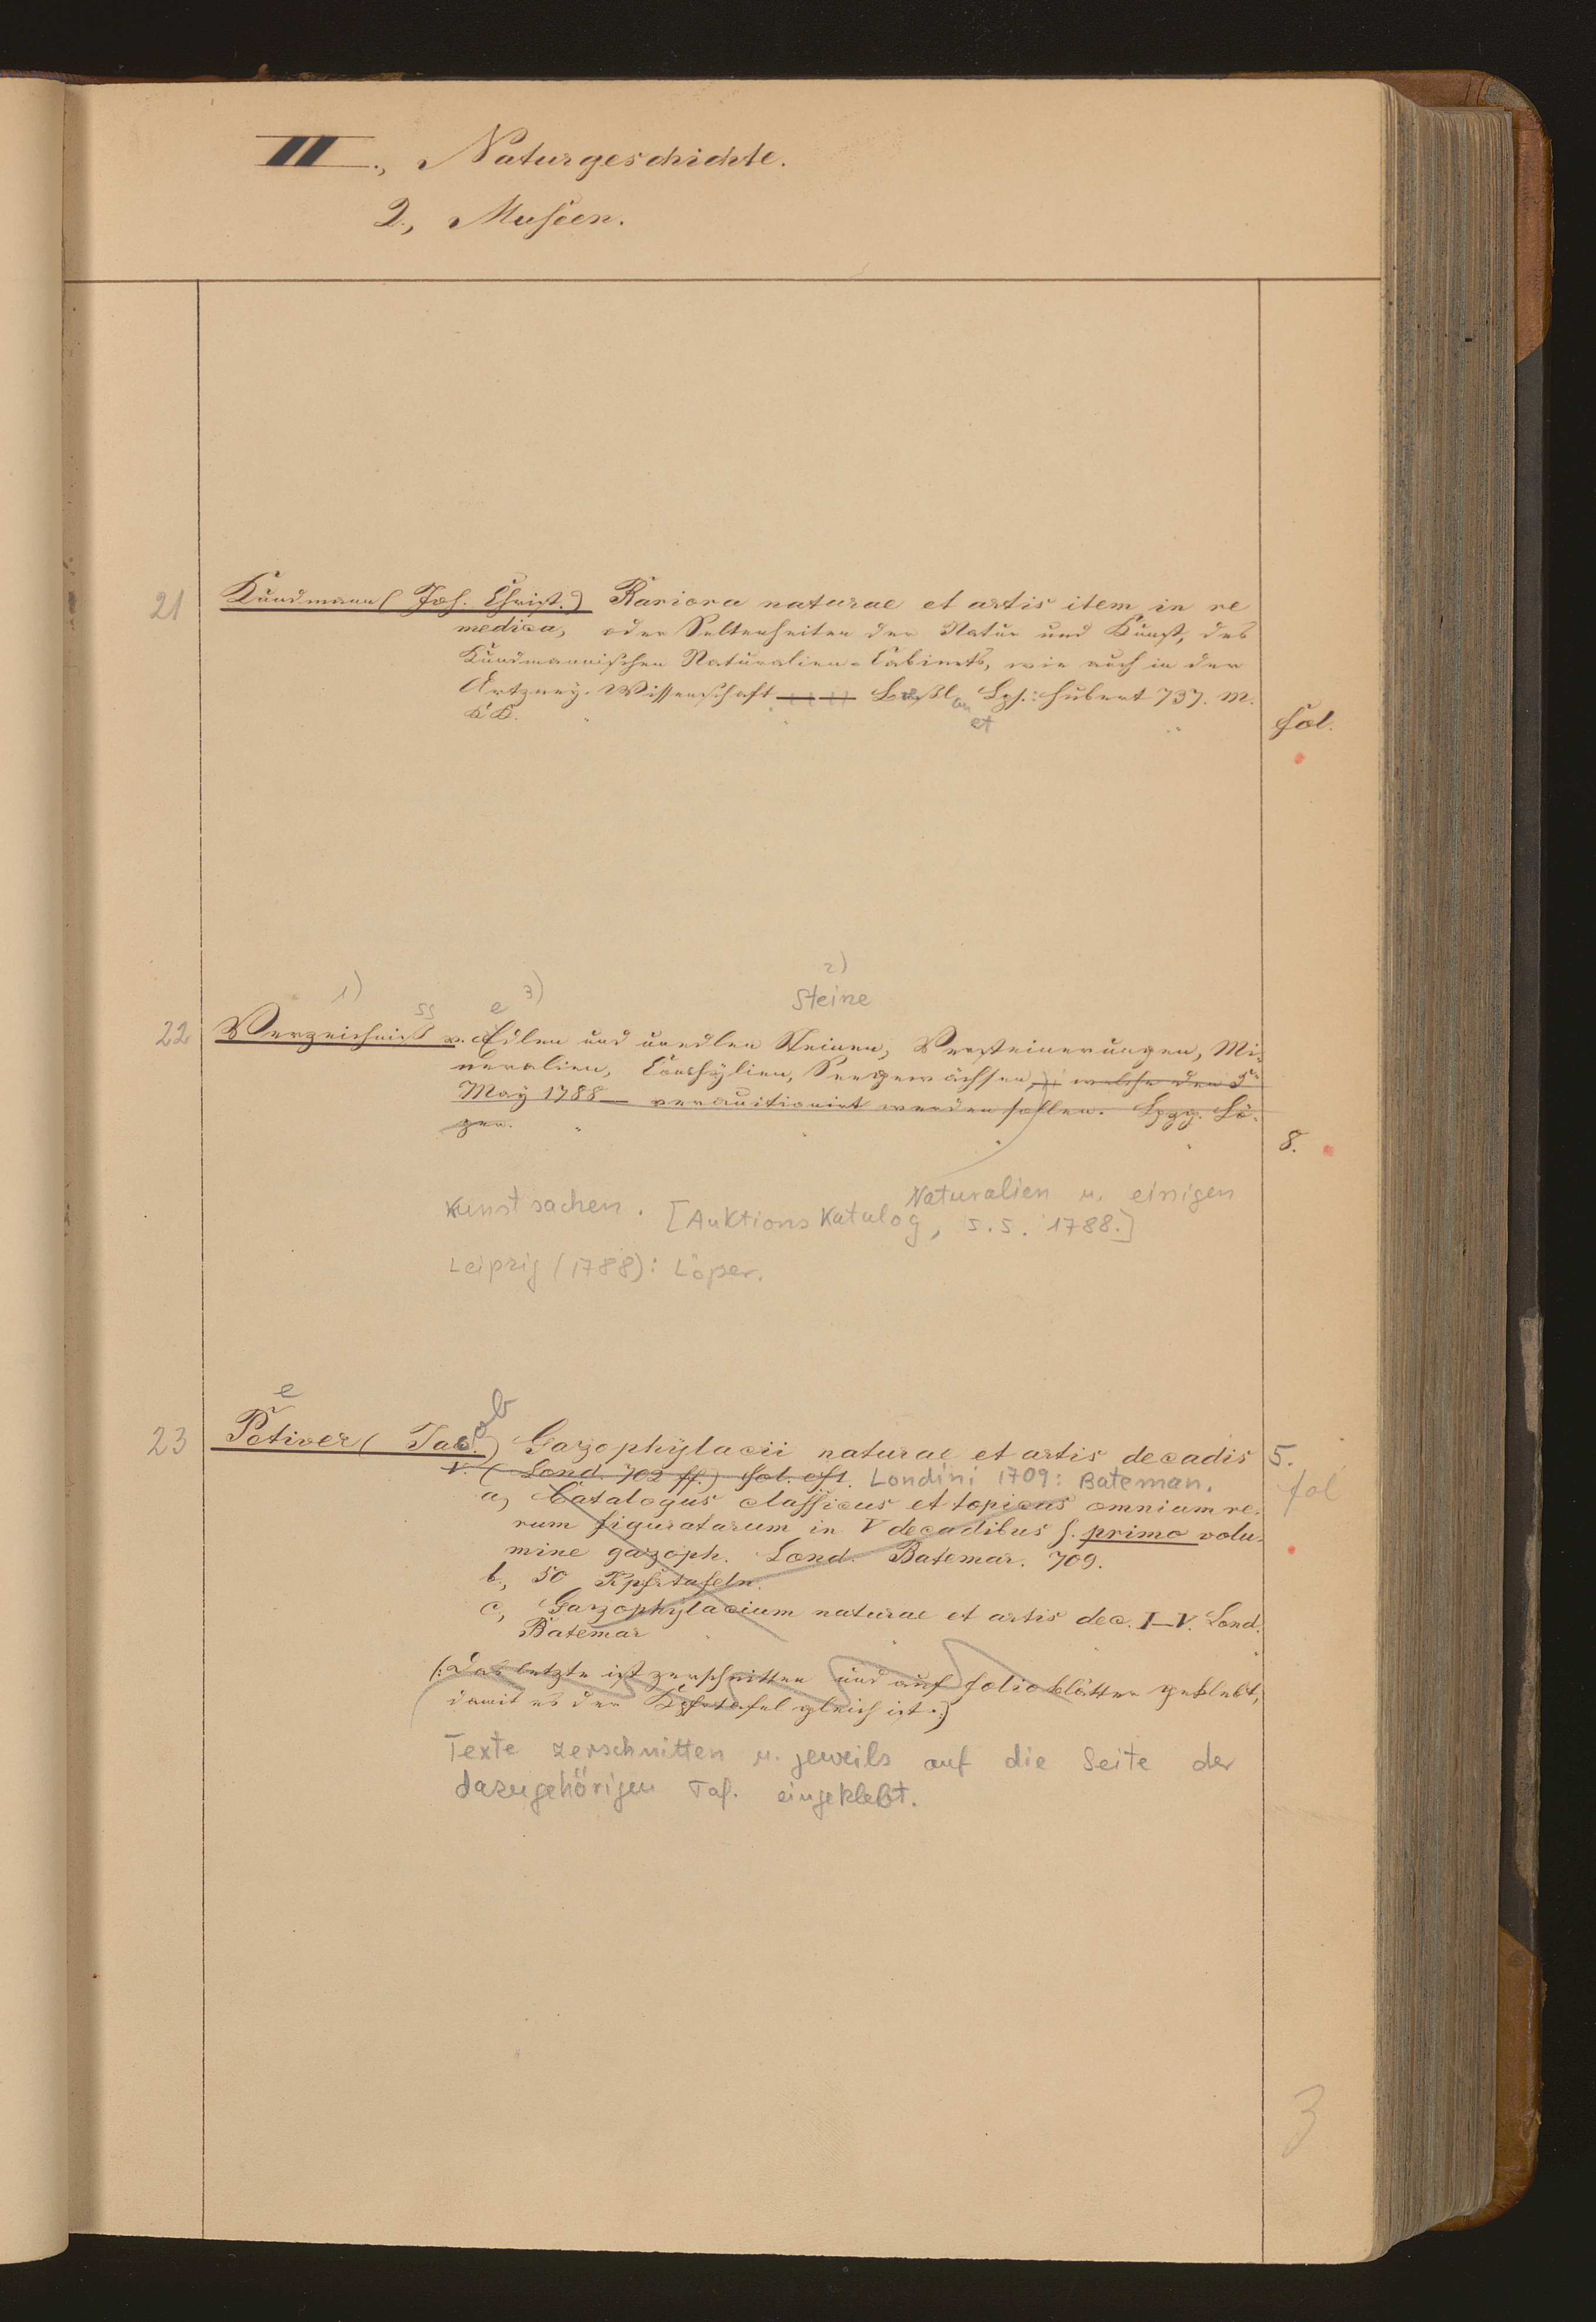 II., Naturgeschichte.
2., Museen.
21 Kundmann (Joh. Christ.) Rariora naturae et artis item in re
medica, oder Seltenheiten der Natur und Kunst, des
Kundmannischen Naturalien-Cabinets, wie auch in der
Artzney-Wissenschaft — — Breßl. Lpz.: Hubert 737. m.
KK.
au
et
fol.
1) ss e 3) 2)
Steine
22 Verzeichniß v. Edlen und unedlen Steinen, Versteinerungen, Mi-
neralien, Conchÿlien, Seegewächsen, — welche den 5ten
May 1788 — verauctionirt werden sollen. Lpzg. Lö-
per.
8.
Naturalien u. einigen
Kunstsachen. [Auktions Katalog, 5.5. 1788.]
Leipzig (1788): Löper.
e
ob
23 Petiver (Jac.) Gazophÿlacii naturae et artis decadis 5.
V. (Lond. 702 ff.) fol. Londini 1709: Bateman. fol
a, Catalogus classicus et topicus omnium re-
rum figuratarum in V decadibus s. primo volu-
mine gazoph. Lond. Batemar. 709.
b., 50 Kpfrtafeln.
c, Gazophÿlacium naturae et artis dec. I–V. Lond.
Batemar
(: Das letzte ist zerschnitten und auf folioblätter geklebt,
damit es den Kpfrtafel gleich ist :)
Texte zerschnitten u. jeweils auf die Seite der
dazugehörigen Taf. eingeklebt.
3